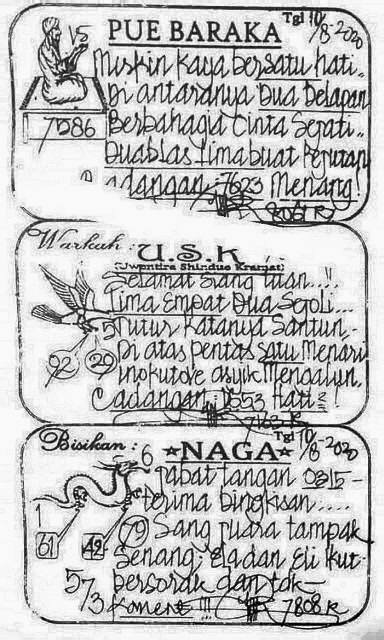 PUE BARAKA
Tgl 10/8-2020
15
Miskin kaya bersatu hati..
Di antaranya Dua Delapan
7586
Berbahagia Cinta Sejati..
Duablas lima buat Perutan
Cadangan: 7623 Menang!
8051 R
Warkah: U.S.K
(Uwentira Shindue Kramat)
Selamat siang tuan...!!
Lima Empat Dua Sejoli...
5
Tutur Katanya Santun,-
92 29
Di atas pentas satu Menari
inokutove asyik Mengalun.
Cadangan: 1553 Hati2!
7163 R
Bisikan: NAGA
Tgl 10/8-2020
6
Jabat tangan 0315-
terima bingkisan....
1
61 42 79
Sang juara tampak
Senang; Ela dan Eli ikut
57/3
bersorak dan tak-
Koment !!!
7808 R